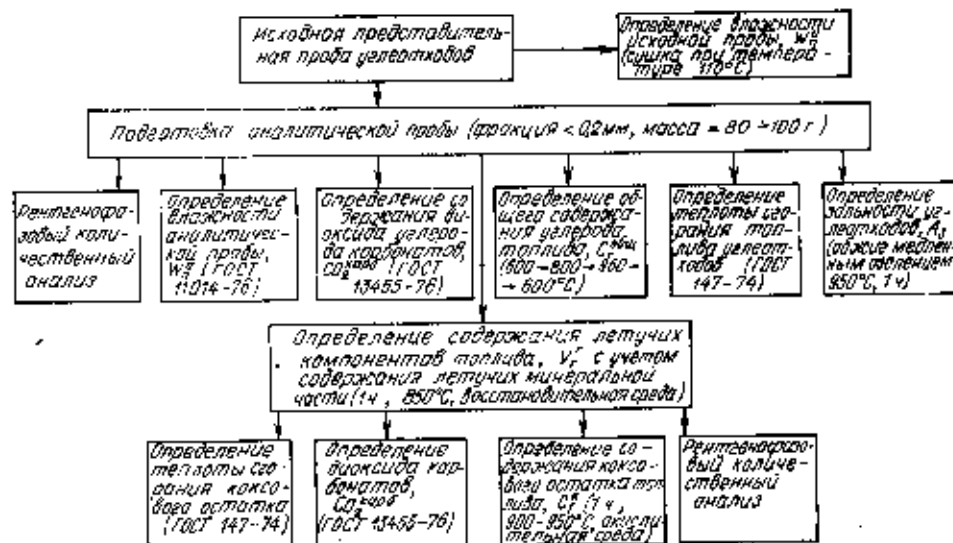 Исходная представитель-
ная проба углеотходов
Определение влажности
исходной пробы, W
(сушка при темпера-
туре 110°С)
Подготовка аналитической пробы (фракция < 0,2мм, масса = 80 100 г)
Рентгенофа-
зовый коли-
чественный
анализ
Определение
влажности
аналитичес-
кой пробы,
(ГОСТ
11014-76)
Определение со
держания ди
оксида углерода
карбонатов,
(ГОСТ
13455-76)
Определение об
щего содержа
ния углерода
топлива,
(600→800→
→ 600°С)
Определение
теплоты сго
рания топ
лива углеот
ходов (ГОСТ
147-74)
Определение
зольности уг
леотходов,
(обжиг медлен
ным озолением
950°С, 1 ч)
Определение содержания летучих
компонентов топлива, с учетом
содержания летучих минеральной
части (1ч, 850°С, восстановительная среда)
Определение
теплоты сго-
рания коксо-
вого остатка
(ГОСТ 147-74)
Определение
диоксида кар-
бонатов,
(ГОСТ 13455-76)
Определение со-
держания коксо-
вого остатка топ
лива, (1 ч,
900-950°С, окисли
тельная среда)
Рентгенофазо-
вый количе-
ственный
анализ